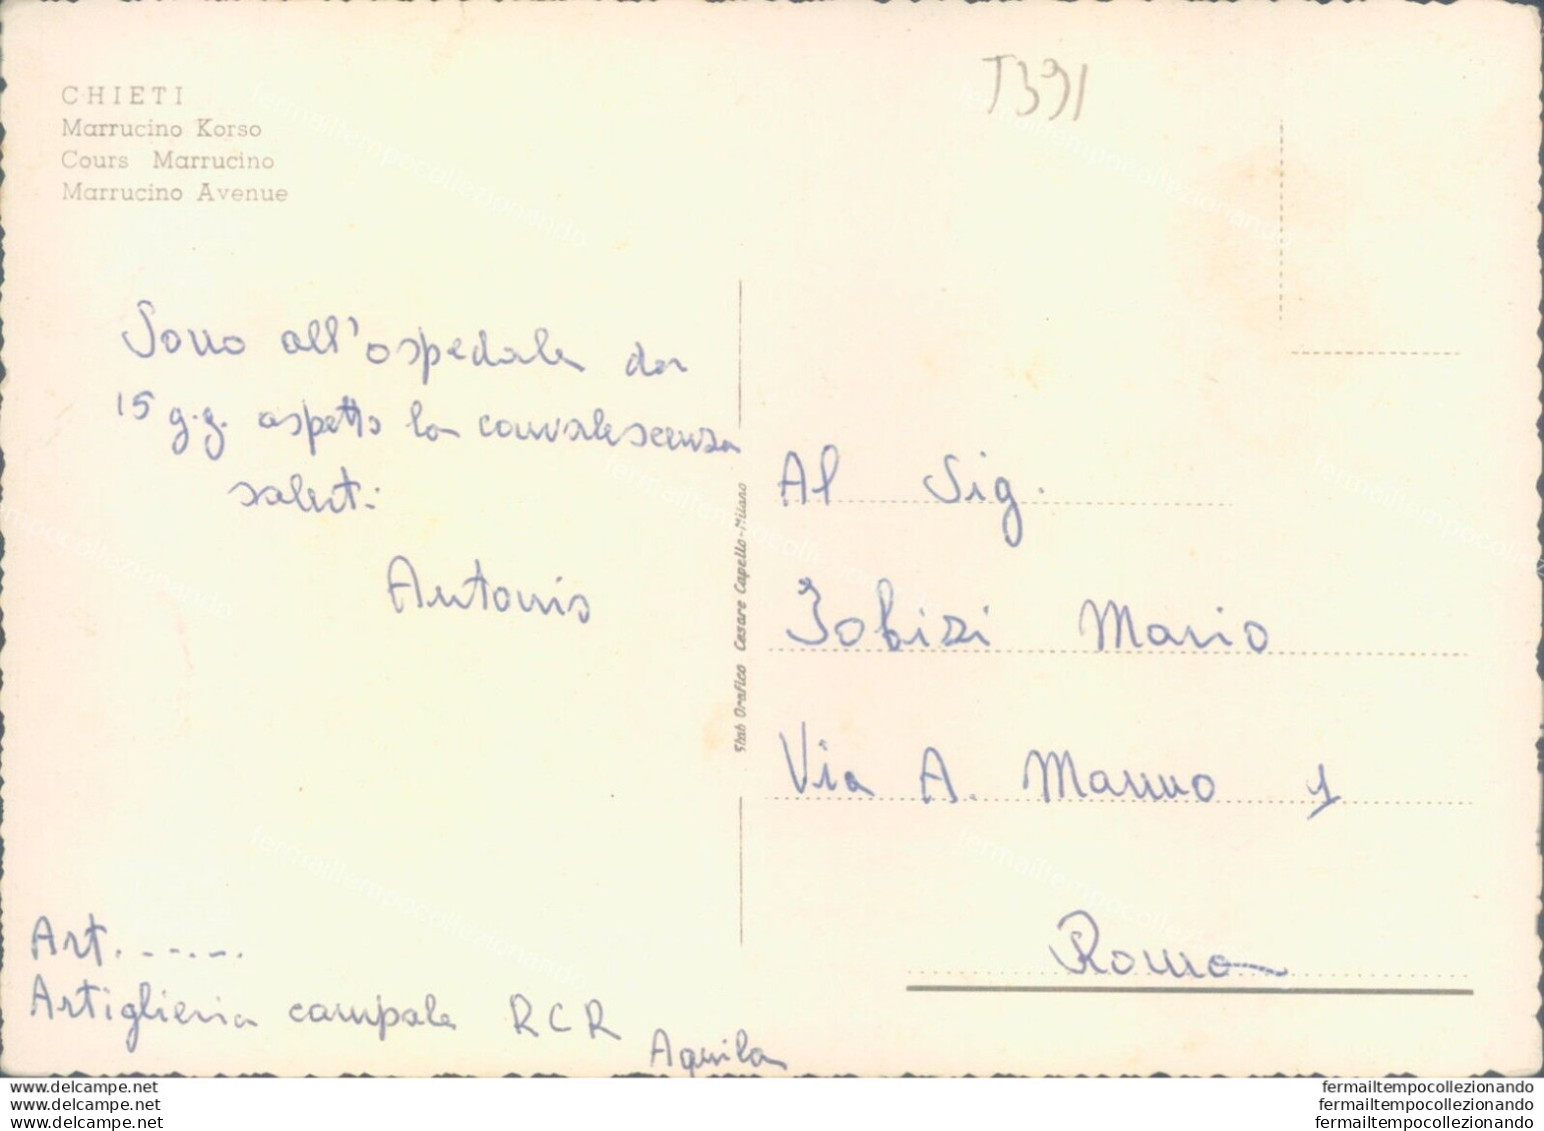 CHIETI
Marrucino Korso
Cours Marrucino
Marrucino Avenue
T391
Sono all'ospedale da
15 g.g. aspetto la convalescenza
saluti
Antonio
Stab Grafico Cesare Capello-Milano
Al Sig.
Mario
Via A. Manno 1
Roma
Art. -----.
Artiglieria campale RCR
Aquila
www.delcampe.net
www.delcampe.net
www.delcampe.net
fermailtempocollezionando
fermailtempocollezionando
fermailtempocollezionando